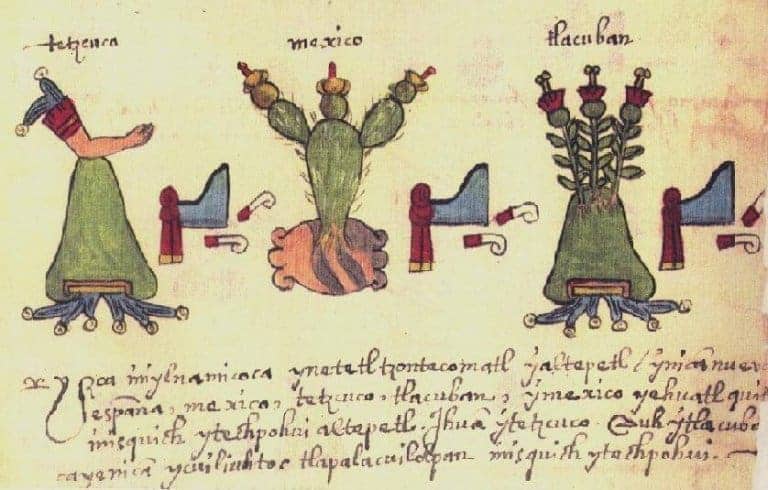 tetzcuca
mexico
tlacuban
Yzca inylnamicoca yn etetl tzontecomatl yaltepetl / ynicā nueva
españa, mexico, tetzcuco, tlacuban, ymexico yehuatl qui
ixquich ytechpohui altepetl. Ihuā ytetzcuco. Auh ytlacuba
ca yenicā ycuiliuhtoc tlapalacuilolpan ixquich ytechpohui.